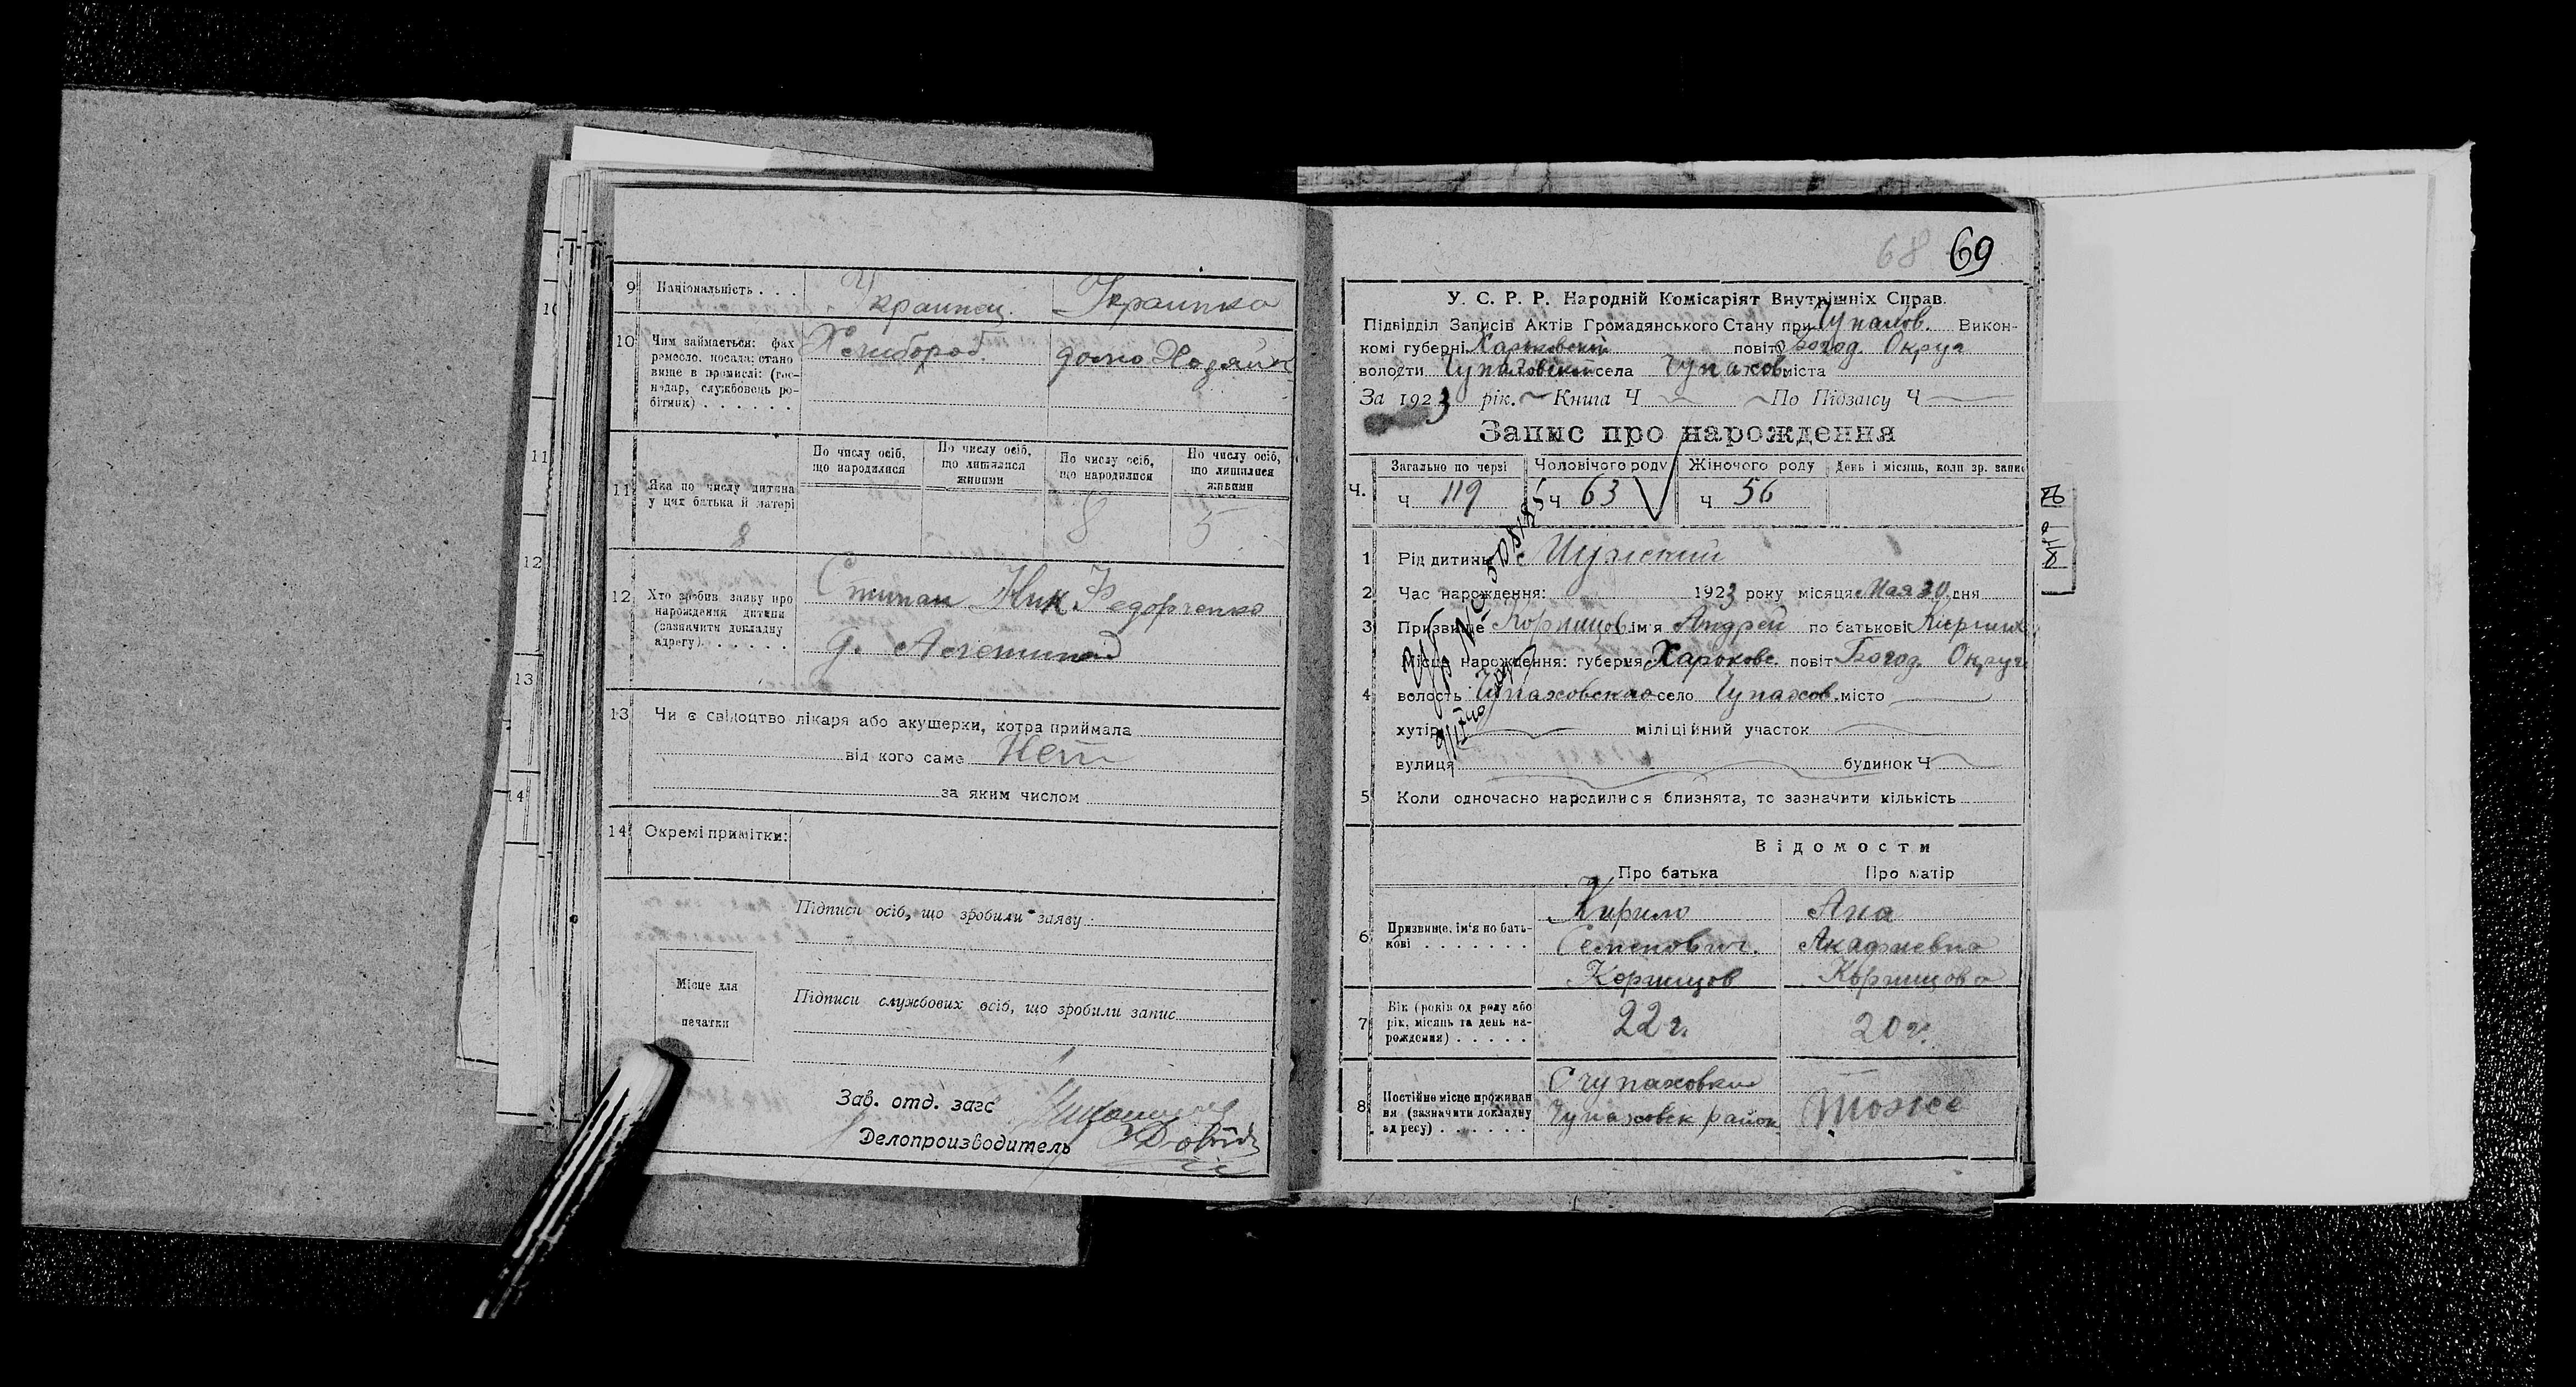 9 Національність . . . Украинец. Украинка
10 Чим займається: фах Хлибороб. домо Хозяйк
ремесло, посада: стано
вище в промислі: (гос-
подар, службовець ро-
бітник) . . . . . .
11 Яка по числу дитина у цих батька й матері 8
По числу осіб, що народилися
По числу осіб, що лишилися живими
По числу осіб, що народилися 8
По числу осіб, що лишилися живими 5
12 Хто зробив заяву про Степан Ник Федорченко
нарождення дитини
(зазначити докладну
адресу) . . . . . д.
13 Чи є свідоцтво лікаря або акушерки, котра приймала
від кого саме Нет
за яким числом
14 Окремі примітки:
Підписи осіб, що зробили заяву:
Місце для
печатки
Підписи службових осіб, що зробили запис
Зав. отд. загс
Делопроизводитель
68 69
У. С. Р. Р. Народній Комісаріят Внутрішніх Справ.
Підвідділ Записів Актів Громадянського Стану при Чупахов. Викон-
комі губерні Харковской повіту Богод Округа
волости Чупаховской села Чупахов міста
За 1923 рік. Книга Ч По Підзапису Ч
Запис про нарождення
Загально по черзі Чоловічого роду Жіночого роду День і місяць, коли зр. запис
Ч. Ч 119 Ч 63 Ч 56
1 Рід дитини Мужский
2 Час нарождення: 1923 року місяця Мая 30 дня
3 Призвище Коршцов ім'я Андрей по батькові Кирилл
Місце нарождення: губерня Харковс. повіт Богод Округ
4 волость Чупаховская село Чупахов. місто
хутір міліційний участок
вулиця будинок Ч
5 Коли одночасно народилися близнята, то зазначити кількість
Відомости
Про батька Про матір
6 Призвище, ім'я по бать-
кові . . . . . . .
Кирило Ана
Семенович. Акадиевна
7 Вік (років од роду або 22 г. 20 г.
рік, місяць та день на-
рождення) . . . . .
8 Постійне місце проживан С Чупаховки Тоже
ня (зазначити докладну Чупаховск район
адресу) . . . . . .